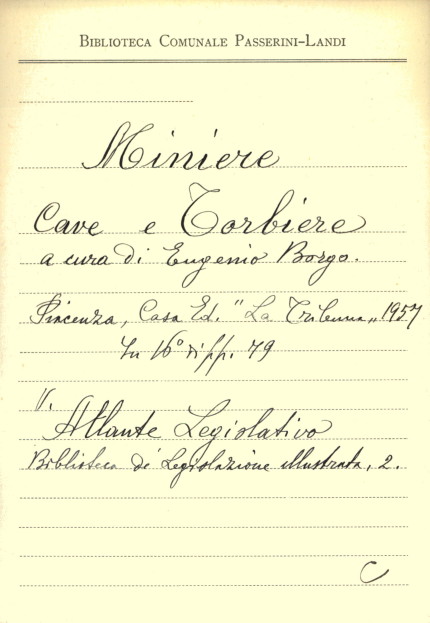 BIBLIOTECA COMUNALE PASSERINI-LANDI
Miniere
Cave e Torbiere
a cura di Eugenio Borgo.
Piacenza, Casa Ed. "La Tribuna„ 1957
In 16° di pp. 79
V.
Atlante Legislativo
Biblioteca di Legislazione illustrata, 2.
C